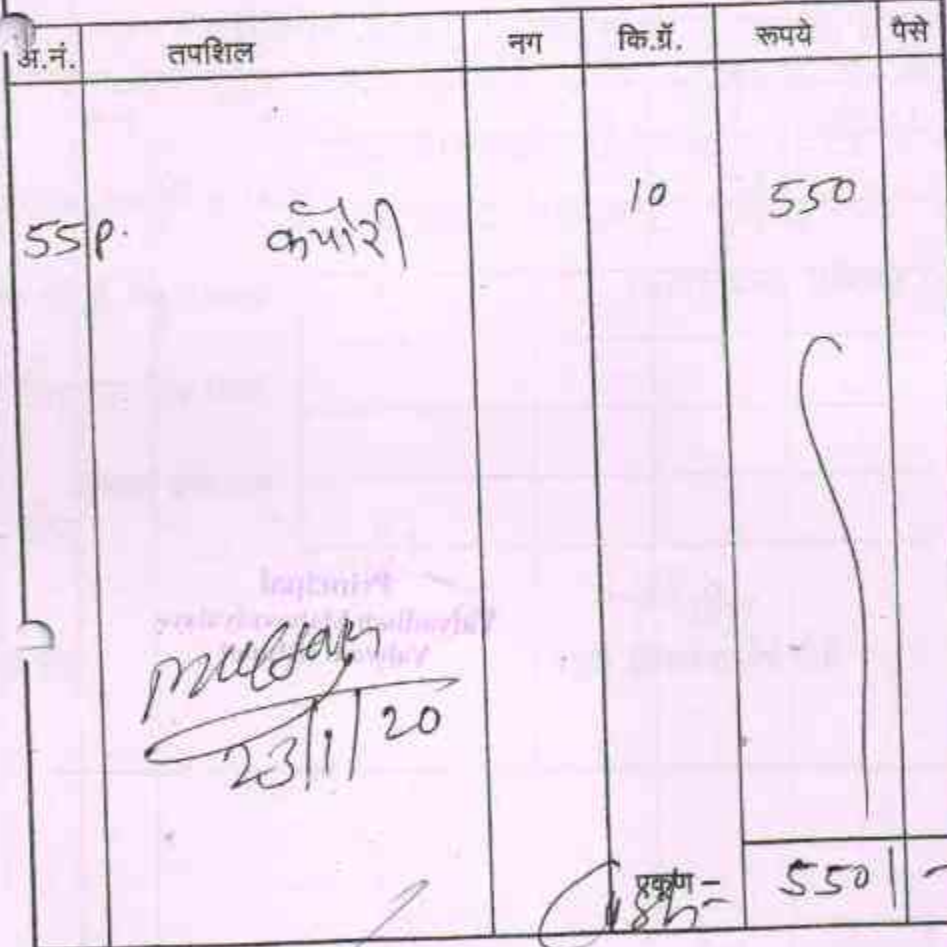 अ.नं. तपशिल नग कि.ग्रॅ. रूपये पैसे
55 P. कपोरी 10 550
23/1/20
एकूण = 550/-